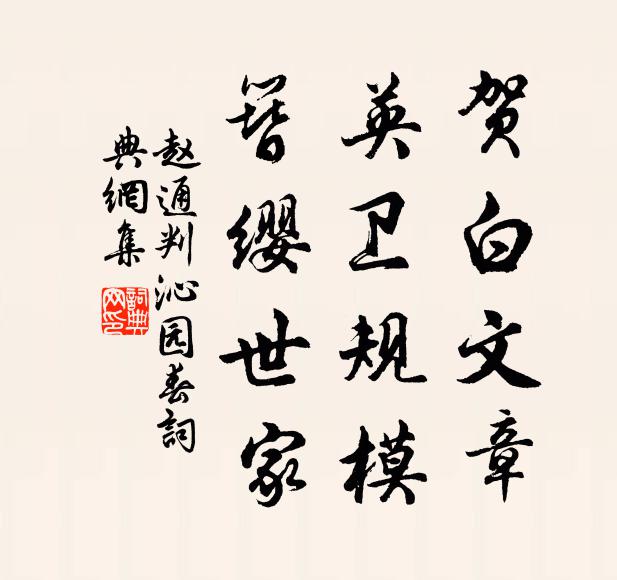 贺白文章
英卫规模
簪缨世家
赵通判沁园春詞
典網集
詞典网印